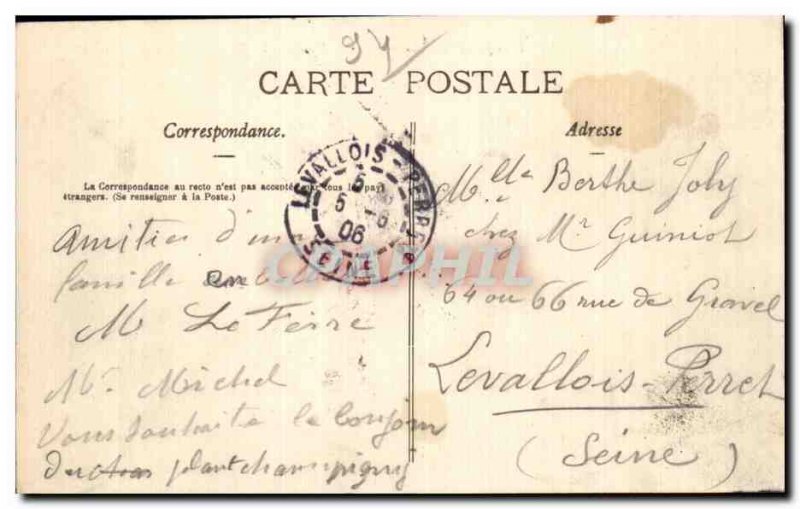 94
CARTE POSTALE
Correspondance.
La Correspondance au recto n'est pas acceptée par tous les pays
étrangers. (Se renseigner à la Poste.)
Amitiés d'une
famille en
M Le Ferre
Mr Michel
Vous souhaite le bonjour
plant champigny
LEVALLOIS - PERRET
5
5 - 6
06
SEINE
CPAPHIL
Adresse
Mlle Berthe Joly
chez Mr Guiniot
64 ou 66 rue de Gravel
Levallois-Perret
(Seine)